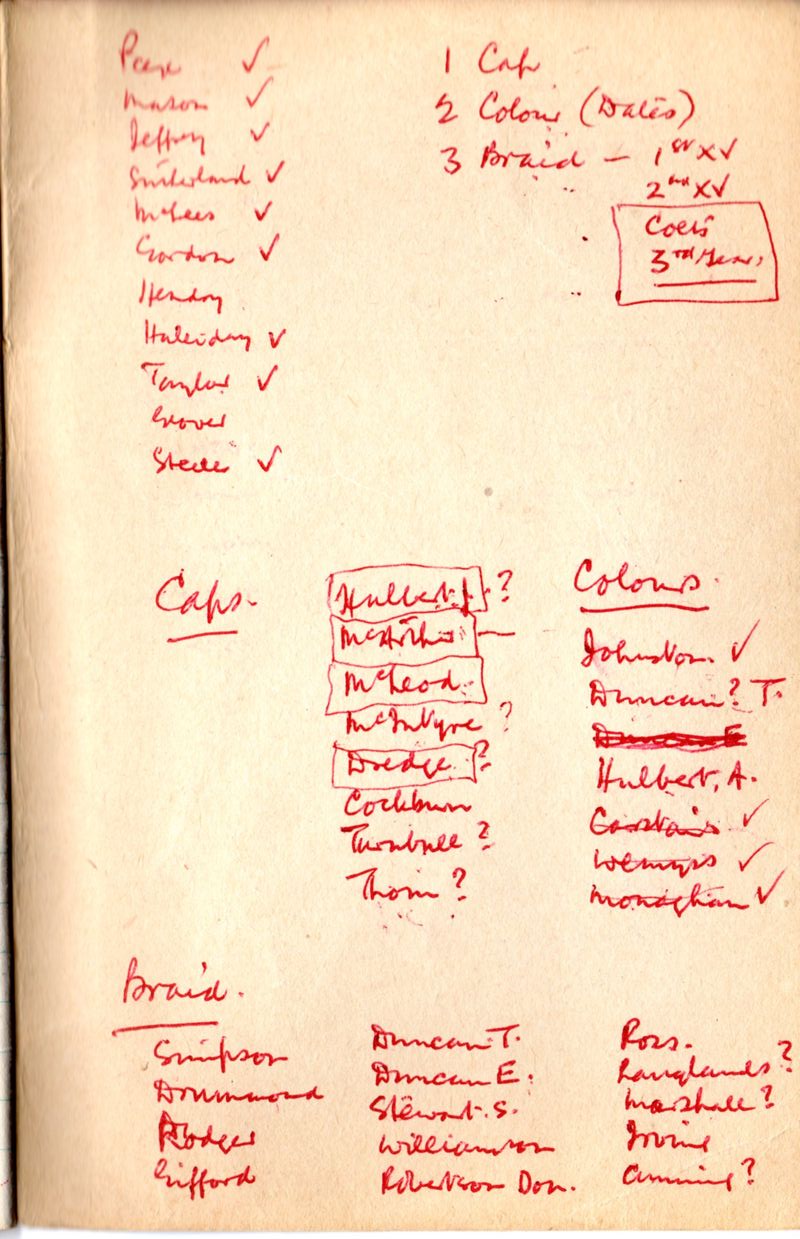 Page ✓
Mason ✓
Jeffrey ✓
Sutherland ✓
McLees ✓
Gordon ✓
Hendry
Haliday ✓
Taylor ✓
Grover
Steele ✓
1 Cap
2 Colour (Dates)
3 Braid – 1st XV
2nd XV
Colts
3rd Year
Caps.
Hulbert J. ?
McArthur –
McLeod.
McIntyre ?
Dredge ?
Cockburn
Turnbull ?
Thom ?
Colours.
Johnston. ✓
Duncan? T.
Duncan E
Hulbert, A.
Carstairs ✓
Wemyss ✓
Monaghan ✓
Braid.
Simpson
Drummond
Rodger
Gifford
Duncan T.
Duncan E.
Stewart. S.
Williamson
Robertson Don.
Ross.
Langlands ?
Marshall ?
Irving
Cumming ?